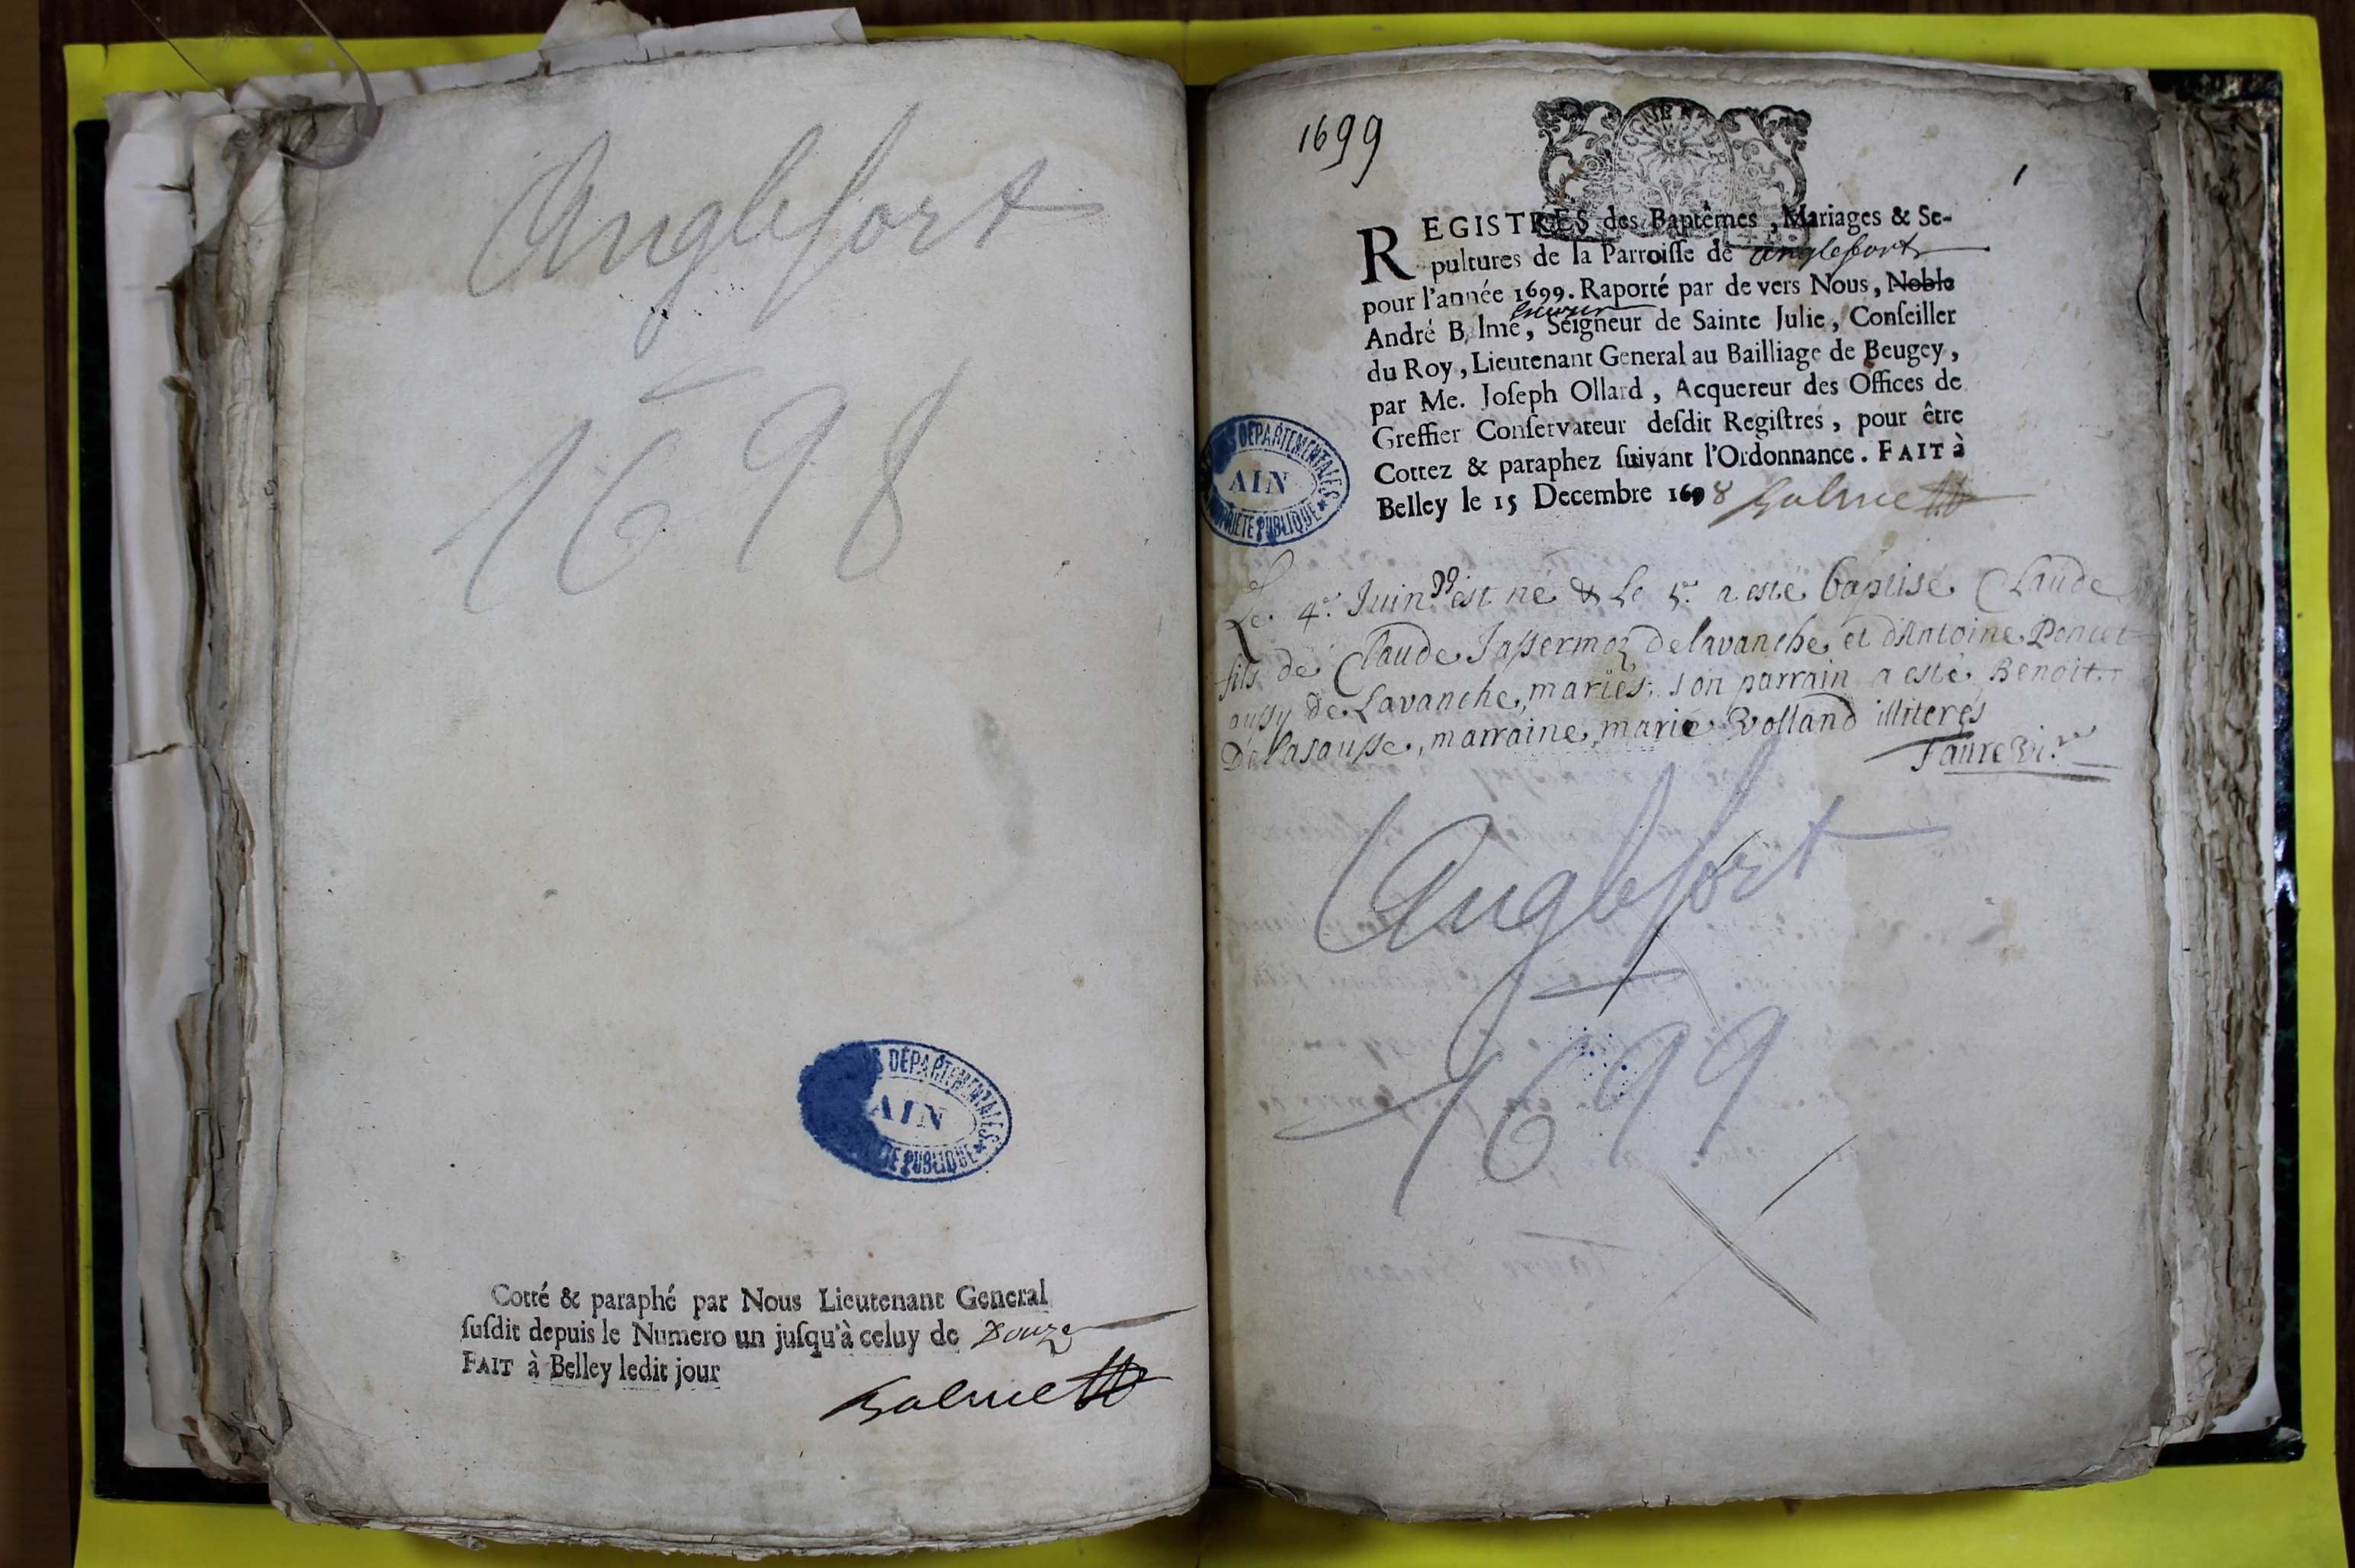 Anglefort
1698
S DÉPARTEMENTALES
AIN
PUBLIQUE
Cotté & paraphé par Nous Lieutenant General
ſuſdit depuis le Numero un juſqu'à celuy de Douze
FAIT à Belley ledit jour
Balme
1699
1
REGISTRES des Baptêmes, Mariages & Se-
pultures de la Parroiſſe de anglefort
pour l'année 1699. Raporté par de vers Nous, Noble
André Balme, Seigneur de Sainte Julie, Conſeiller
du Roy, Lieutenant General au Bailliage de Beugey,
par Me. Joſeph Ollard, Acquereur des Offices de
Greffier Conſervateur deſdit Regiſtres, pour être
Cottez & paraphez ſuivant l'Ordonnance. FAIT à
Belley le 15 Decembre 1698 Balme
DÉPARTEMENTALES
AIN
PROPRIÉTÉ PUBLIQUE
Le 4e. Juin 99 est né & le 5e. a esté baptisé Claude
fils de Claude Jassermoz de lavanche et d'Antoine Poncet
aussy de Lavanche, mariés, son parrain a esté Benoit
Delasausse, marraine marie Volland illiterés
Faure Vi.re
Anglefort
1699